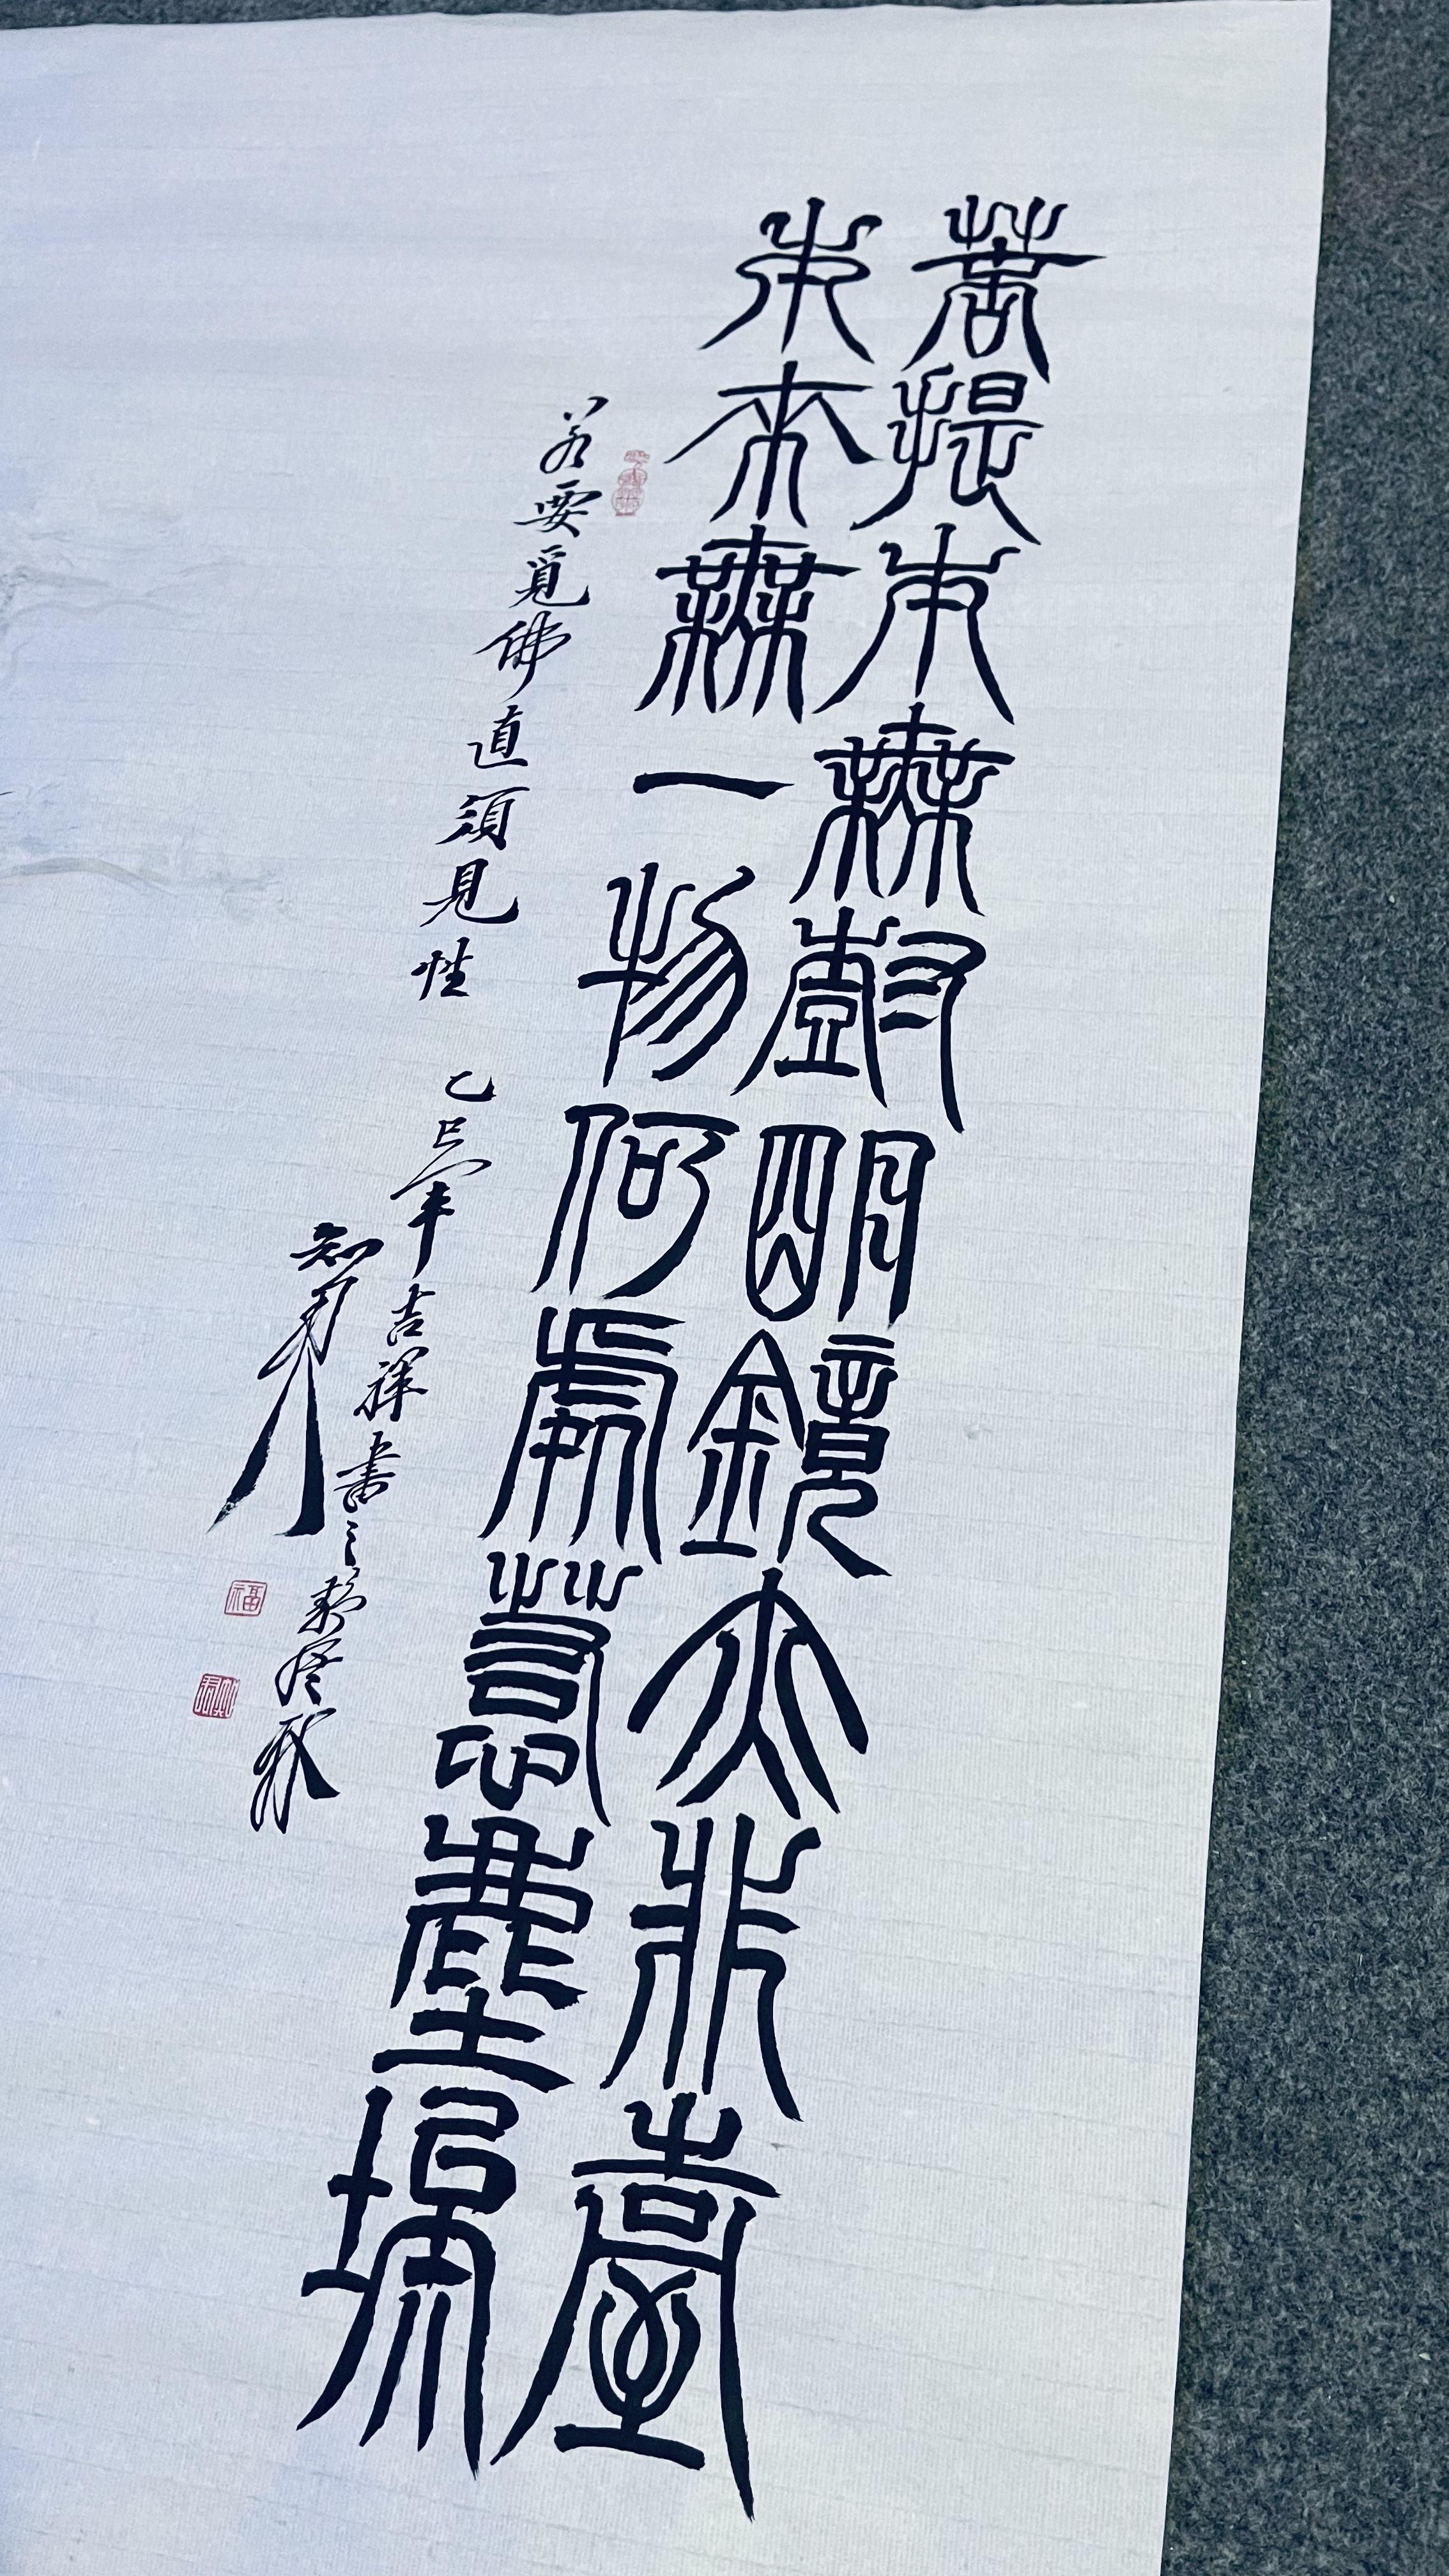 菩提本無樹明鏡亦非臺
本來無一物何處惹塵埃
若要覓佛直須見性
乙巳年吉祥書之
福